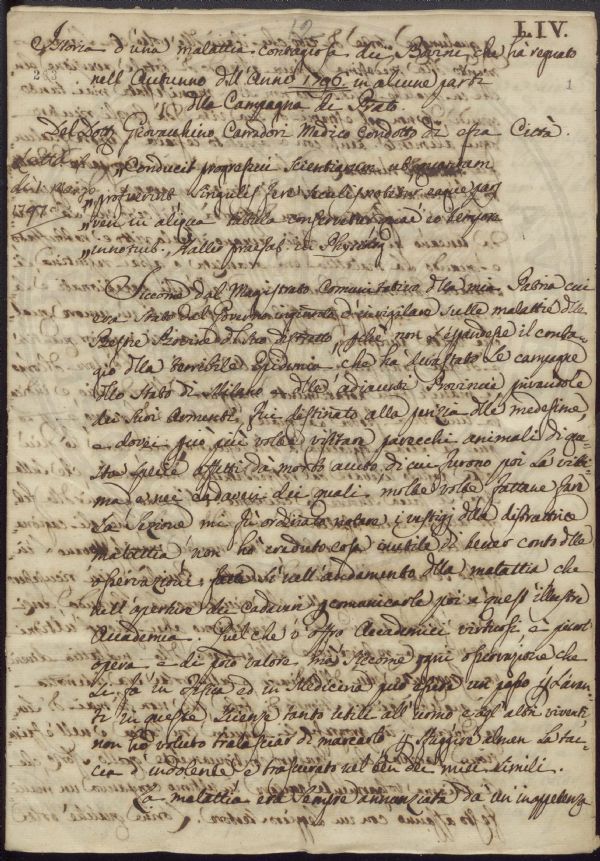 LIV.
Istoria d'una malattia contagiosa dei Bovini, che ha regnato
nell'Autunno dell'Anno 1796 in alcune parti
della Campagna di Prato.
Del Dott. Giovacchino Carradori Medico Condotto di essa Città.
263
1
di 1 Marzo
1797
Conducit progressui scientiarum
singulis fere seculi
in aliqua tabula
Siccome dal Magistrato Comunitativo della mia Patria cui
era stato dal Governo ingiunto d'invigilare sulle malattie delle
Bestie Bovine del suo distretto, non s'espandesse il conta-
gio della terribile Epidemia che ha devastato le campagne
dello Stato di Milano e delle adiacenti Provincie privandole
dei suoi Armenti, fui destinato alla perizia delle medesime,
e dovei più più volte visitare parecchi animali di que-
sta specie affetti da morbo acuto, di cui furono poi la vitti-
ma, e nei cadaveri dei quali molte volte fattane fare
la sezione mi fu ordinato notare i vestigj della distruttrice
malattia, non ho creduto cosa inutile di tener conto delle
osservazioni, fatte sì nell'andamento della malattia che
nell'apertura dei cadaveri e comunicarle poi a quest'illustre
Accademia. Quel che v'offro Accademici virtuosi, è piccol
opera, e di poco valore, ma siccome ogni osservazione che
si fa in Fisica ed in Medicina può essere un passo
in queste scienze tanto utili all'uomo, e agl'altri viventi,
non ho voluto tralasciar di marcarlo sfuggire almen la tac-
cia d'indolente e trascurato nel ben dei miei simili.
La malattia era sempre annunziata da un'inappetenza